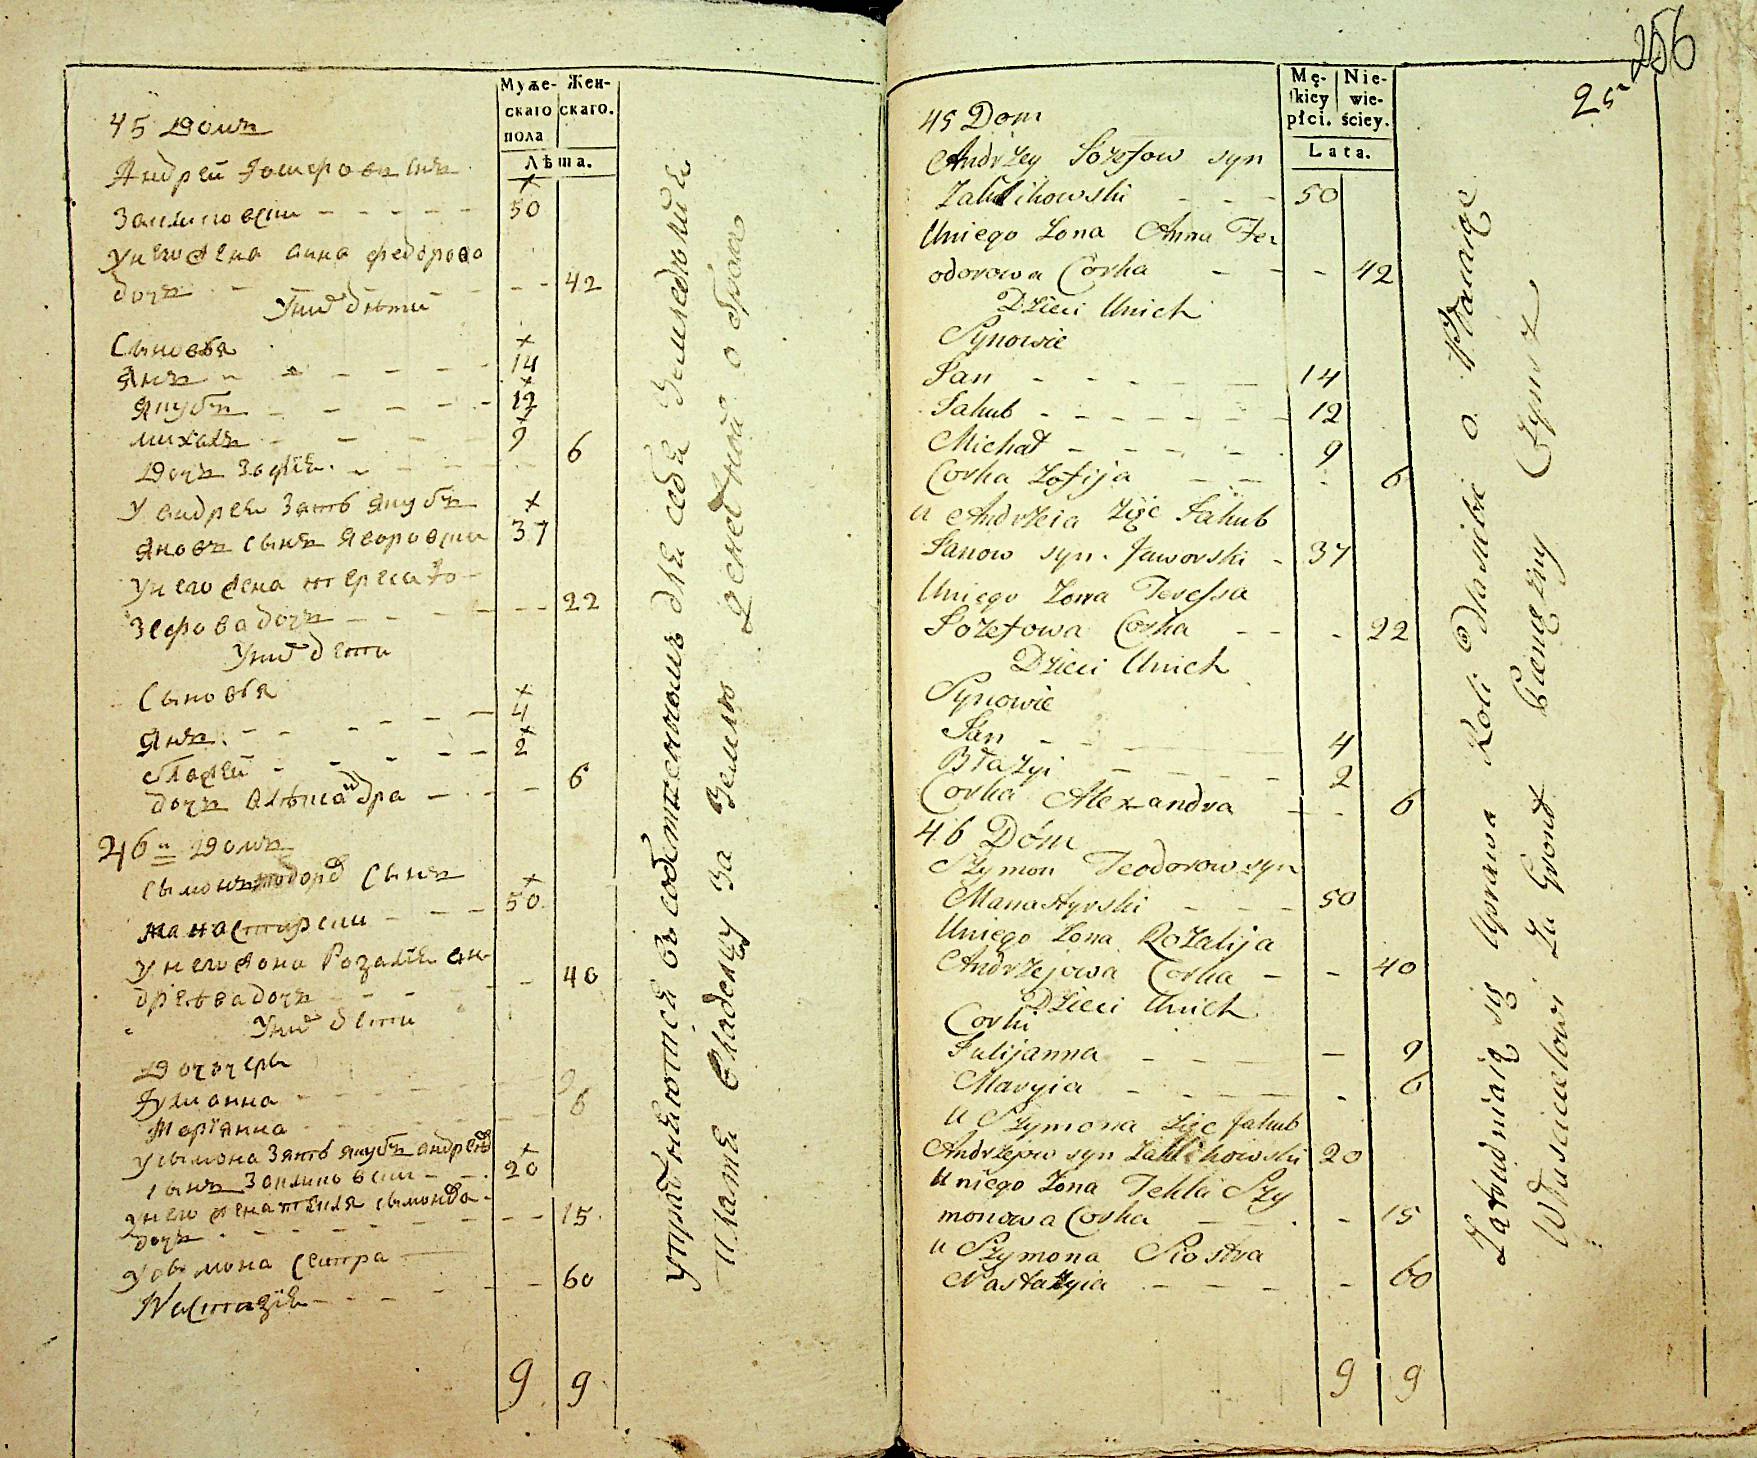 Муже- Жен-
скаго скаго.
пола
Лѣта.
45 Домъ
Андрей Іозефовъ сынъ
Залиховски - - - - - 50
У него жена Анна Федорова
дочъ - - - - - - - 42
У них дѣти
Сыновья
Янъ - - - - - - 14
Якубъ - - - - - 12
Михалъ - - - - 9
Дочъ Зофіа - - - - - 6
У Андрея зять Якубъ
Яновъ сынъ Яворовски 37
У него жена Тереса Іо-
зефова дочъ - - - - - 22
У них дети
Сыновья
Янъ - - - - - - 4
Блажей - - - - - 2
дочъ Александра - - - - 6
46й Домъ
Сымонъ Тодоров Сынъ
Манастирски - - - 50
У него жона Розалія Ан-
дреева дочъ - - - - - 40
У них дети
Дочери
Юлианна - - - - 9
Маріанна - - - - 6
У Сымона зять Якубъ Андреев
сынъ Залиховски - - 20
У него жена Текля Сымонова
дочъ - - - - - - - 15
У Сымона сестра
Настазія - - - - - - 60
9 9
упражняются въ собственномъ для себя земледѣлии
платя владельцу за землю денежной оброкъ
256
25
Mę- Nie-
skiey wie-
płci. ściey.
Lata.
45 Dom
Andrzey Jozefow syn
Zalichowski - - - 50
Uniego Zona Anna Fe
odorowa Corka - - - 42
Dzieci Unich
Synowie
Jan - - - - - - 14
Jakub - - - - - - - 12
Michał - - - - - 9
Corka Zofija - - - 6
u Andrzeia Zięć Jakub
Janow syn Jaworski - 37
Uniego Zona Teressa
Jozefowa Corka - - - 22
Dzieci Unich
Synowie
Jan - - - 4
Błażyi - - - - - 2
Corka Alexandra - - 6
46 Dóm
Szymon Teodorow syn
Manastyrski - - - 50
Uniego Zona Rozalija
Andrzejowa Corka - - 40
Dzieci Unich
Corki
Julijanna - - - - - 9
Maryia - - - - - 6
u Szymona Zięć Jakub
Andrzejow syn Zalichowski 20
Uniego Zona Tekla Szy
monowa Corka - - - - 15
u Szymona Siostra
Nastazyia - - - - - 60
9 9
Zatrudniaią się Uprawa Roli Dla siebie o Płaniąc
Właścicielowi Za Gront Pieniężny Czynsz